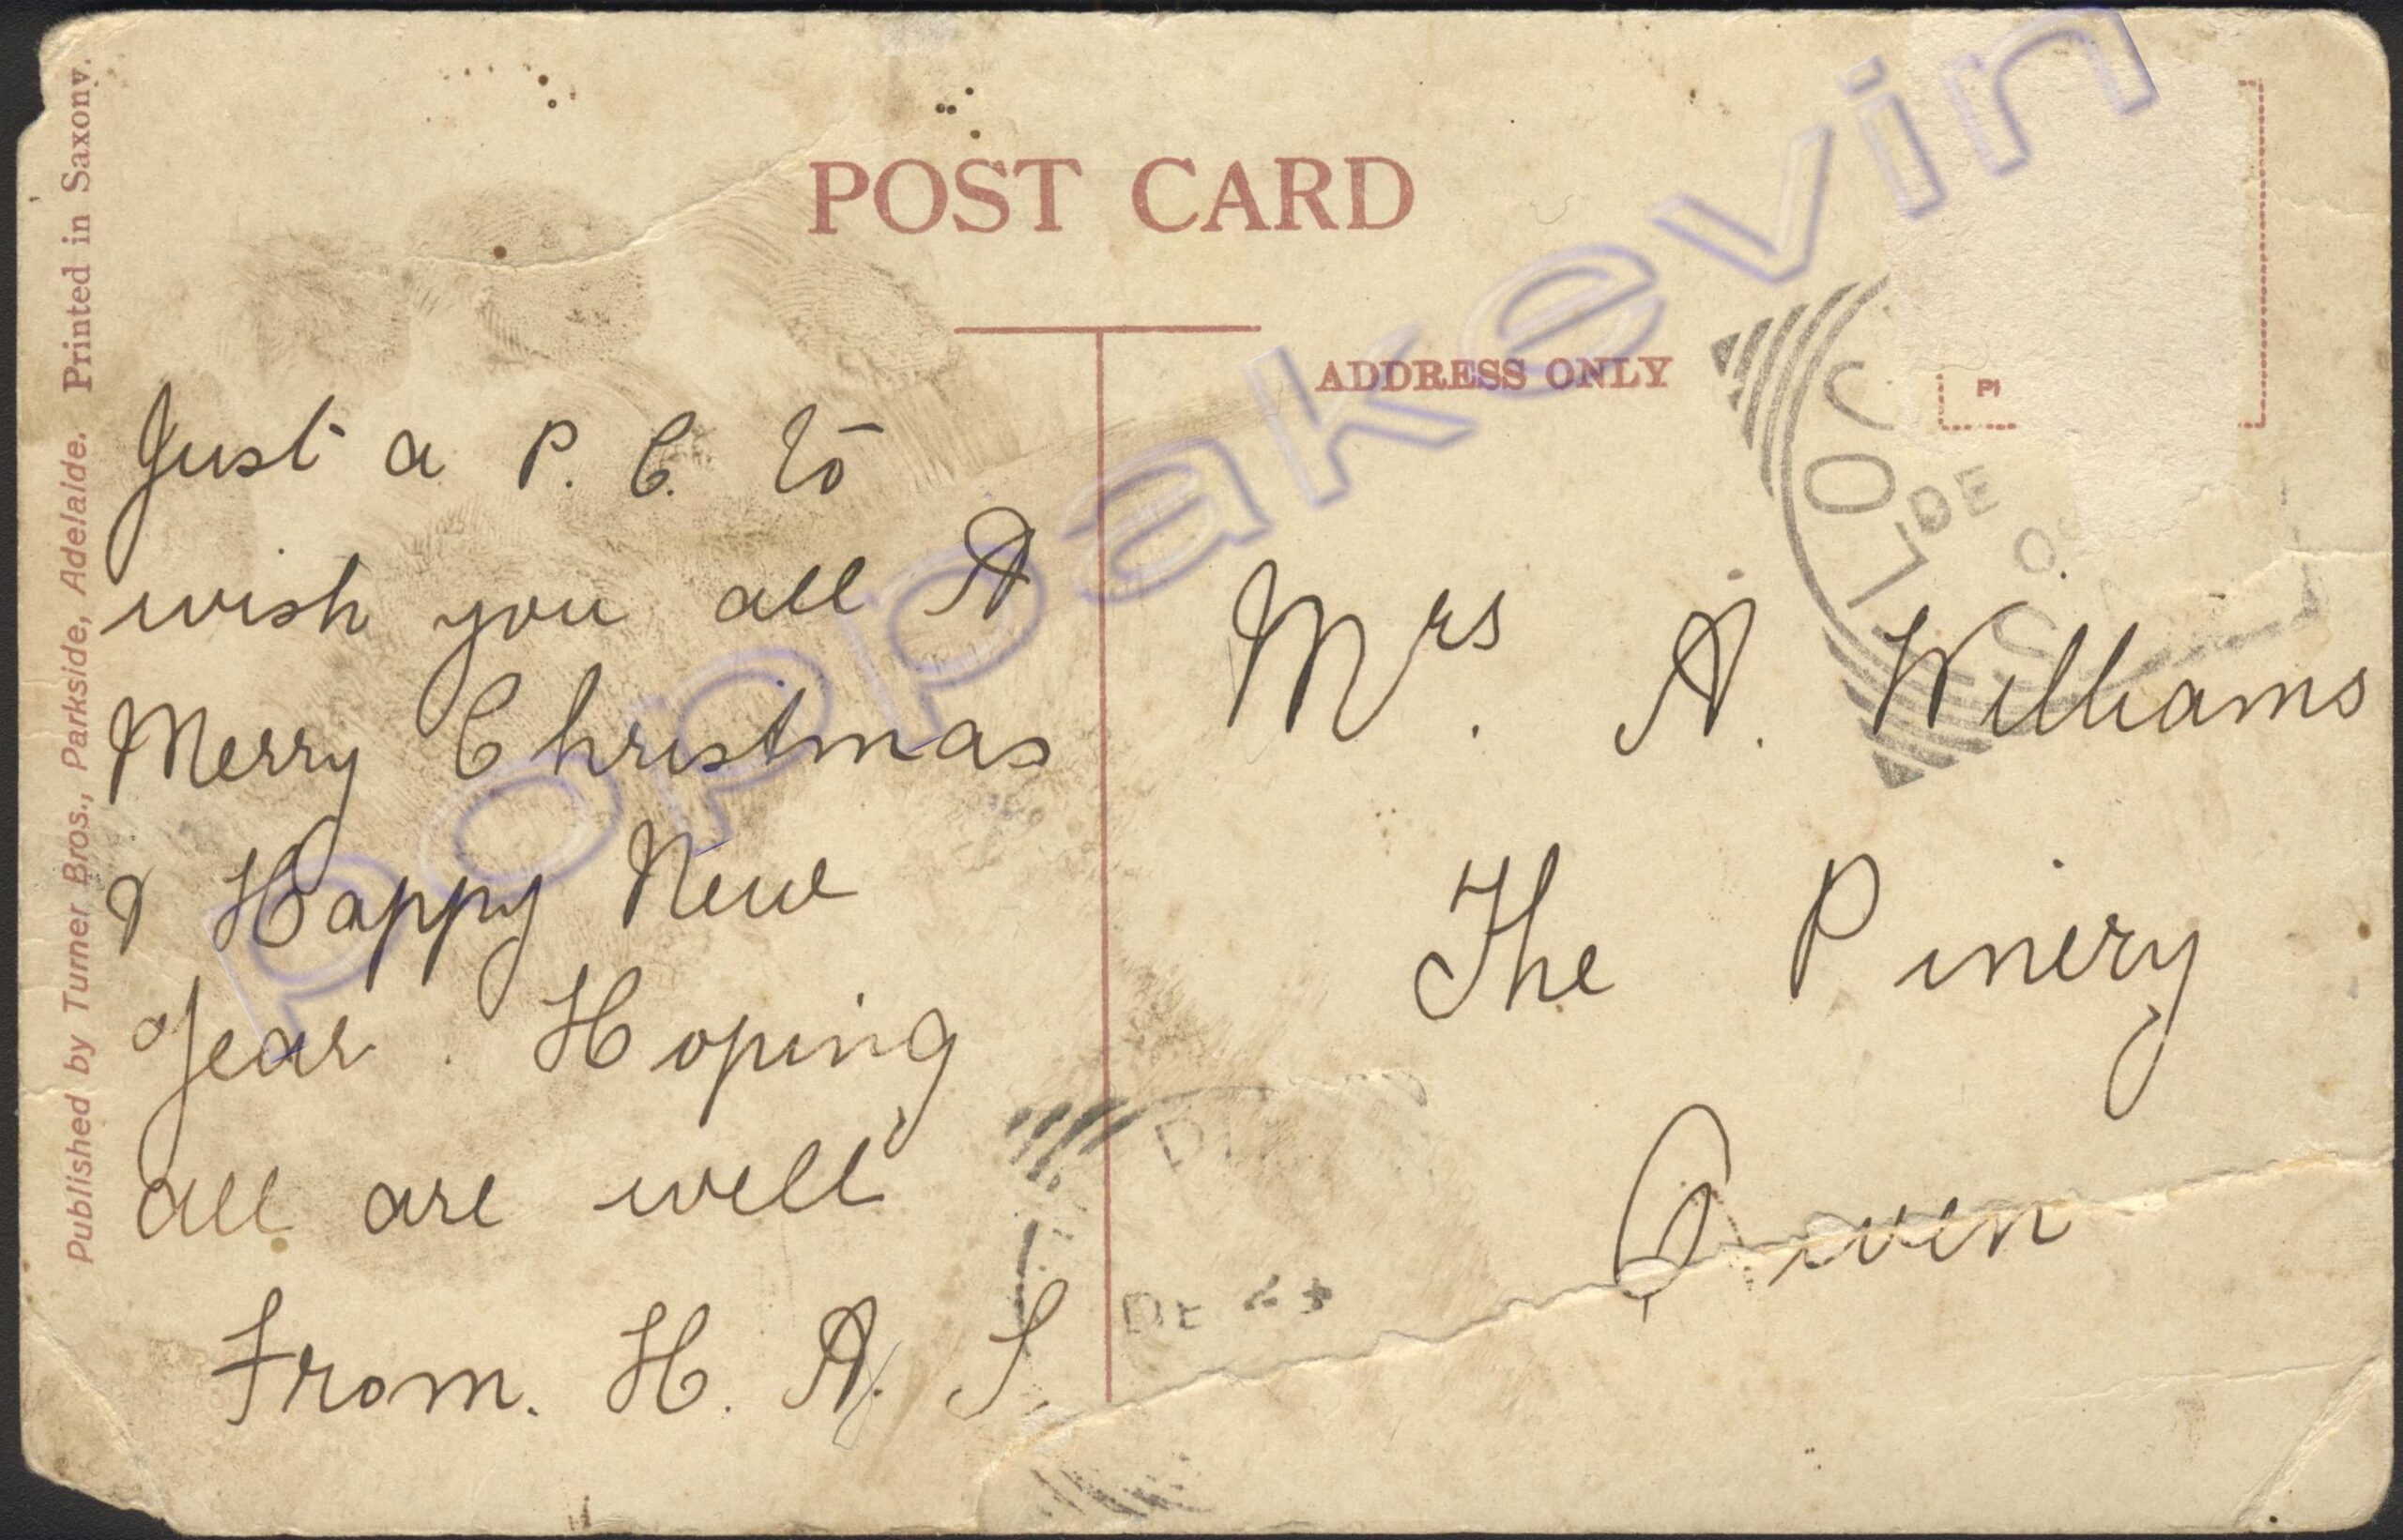 POST CARD
ADDRESS ONLY
Published by Turner Bros., Parkside, Adelaide. Printed in Saxony.
Just a P. C. to
wish you all A
Merry Christmas
& Happy New
Year. Hoping
all are well
From. H. A. S.
Mrs. A. Williams
The Pinery
Owen
DE
DE
poppakevin